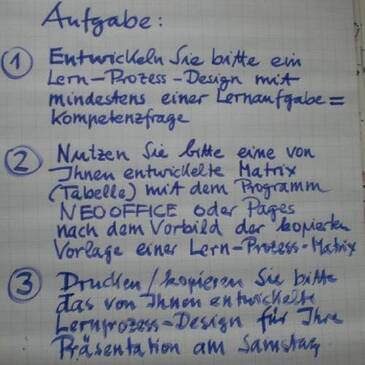 Aufgabe:
① Entwickeln Sie bitte ein
Lern-Prozess-Design mit
mindestens einer Lernaufgabe=
kompetenzfrage
② Nutzen Sie bitte eine von
Ihnen entwickelte Matrix
(Tabelle) mit dem Programm
NEOOFFICE oder Pages
nach dem Vorbild der kopierten
Vorlage einer Lern-Prozess-Matrix
③ Drucken/kopieren Sie bitte
das von Ihnen entwickelte
Lernprozess-Design für Ihre
Präsentation am Samstag